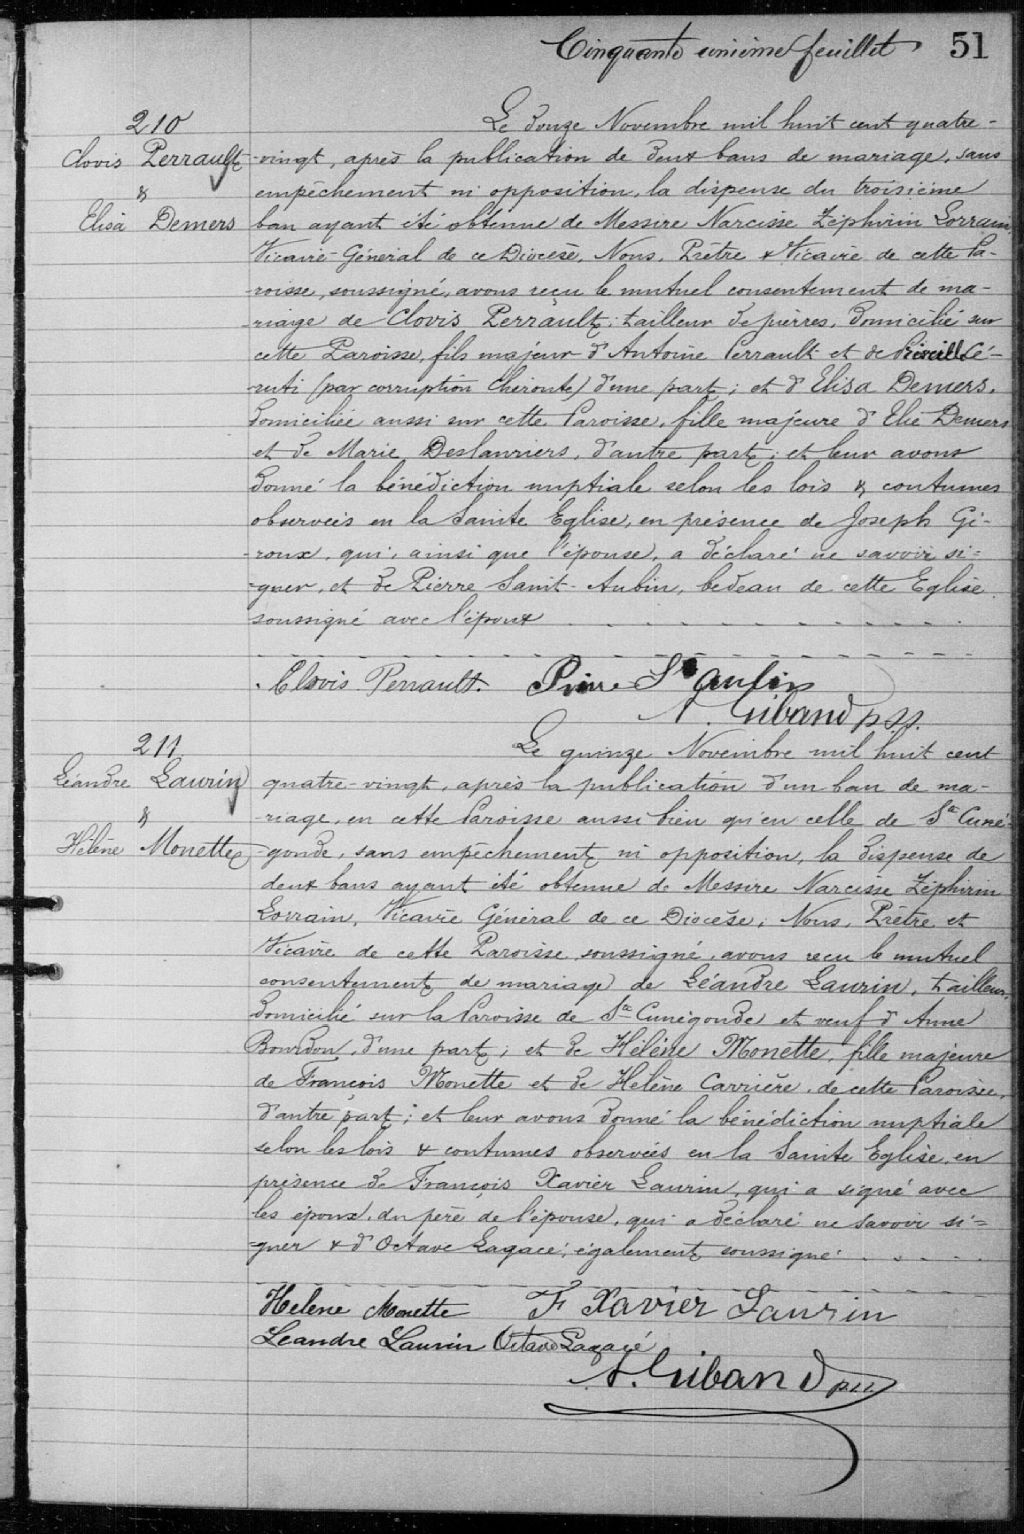 Cinquante unième feuillet 51
210
Clovis Perrault
&
Elisa Demers
Le douze Novembre mil huit cent quatre-
-vingt, après la publication de deux bans de mariage, sans
empêchement ni opposition, la dispense du troisième
ban ayant été obtenue de Messire Narcisse Zéphirin Lorrain,
Vicaire-Général de ce Diocèse, Nous, Prêtre & Vicaire de cette Pa-
-roisse, soussigné, avons reçu le mutuel consentement de ma-
-riage de Clovis Perrault, tailleur de pierres, domicilié sur
cette Paroisse, fils majeur d'Antoine Perrault et de Cé-
-ruti (par corruption Cheroute) d'une part; et d'Elisa Demers,
domiciliée aussi sur cette Paroisse, fille majeure d'Elie Demers
et de Marie Deslauriers, d'autre part; et leur avons
donné la bénédiction nuptiale selon les lois & coutumes
observées en la Sainte Eglise, en présence de Joseph Gi-
-roux, qui, ainsi que l'épouse, a déclaré ne savoir si-
-gner, et de Pierre Saint-Aubin, bedeau de cette Eglise
soussigné avec l'époux
Clovis Perrault. Pierre St Aubin
A. Giband p.s.s.
211
Léandre Laurin
&
Hélène Monette
Le quinze Novembre mil huit cent
quatre-vingt, après la publication d'un ban de ma-
-riage, en cette Paroisse aussi bien qu'en celle de Ste Cuné-
-gonde, sans empêchement ni opposition, la dispense de
deux bans ayant été obtenue de Messire Narcisse Zéphirin
Lorrain, Vicaire Général de ce Diocèse, Nous, Prêtre et
Vicaire de cette Paroisse soussigné, avons reçu le mutuel
consentement de mariage de Léandre Laurin, tailleur,
domicilié sur la Paroisse de Ste Cunégonde et veuf d'Anne
Bourdon, d'une part; et de Hélène Monette, fille majeure
de François Monette et de Hélène Carrière, de cette Paroisse,
d'autre part; et leur avons donné la bénédiction nuptiale
selon les lois & coutumes observées en la Sainte Eglise, en
présence de François Xavier Laurin, qui a signé avec
les époux, du père de l'épouse, qui a déclaré ne savoir si-
-gner & d'Octave Lagacé, également soussigné.
Helene Monette F Xavier Laurin
Leandre Laurin Octave Lagacé
A. Giband pss